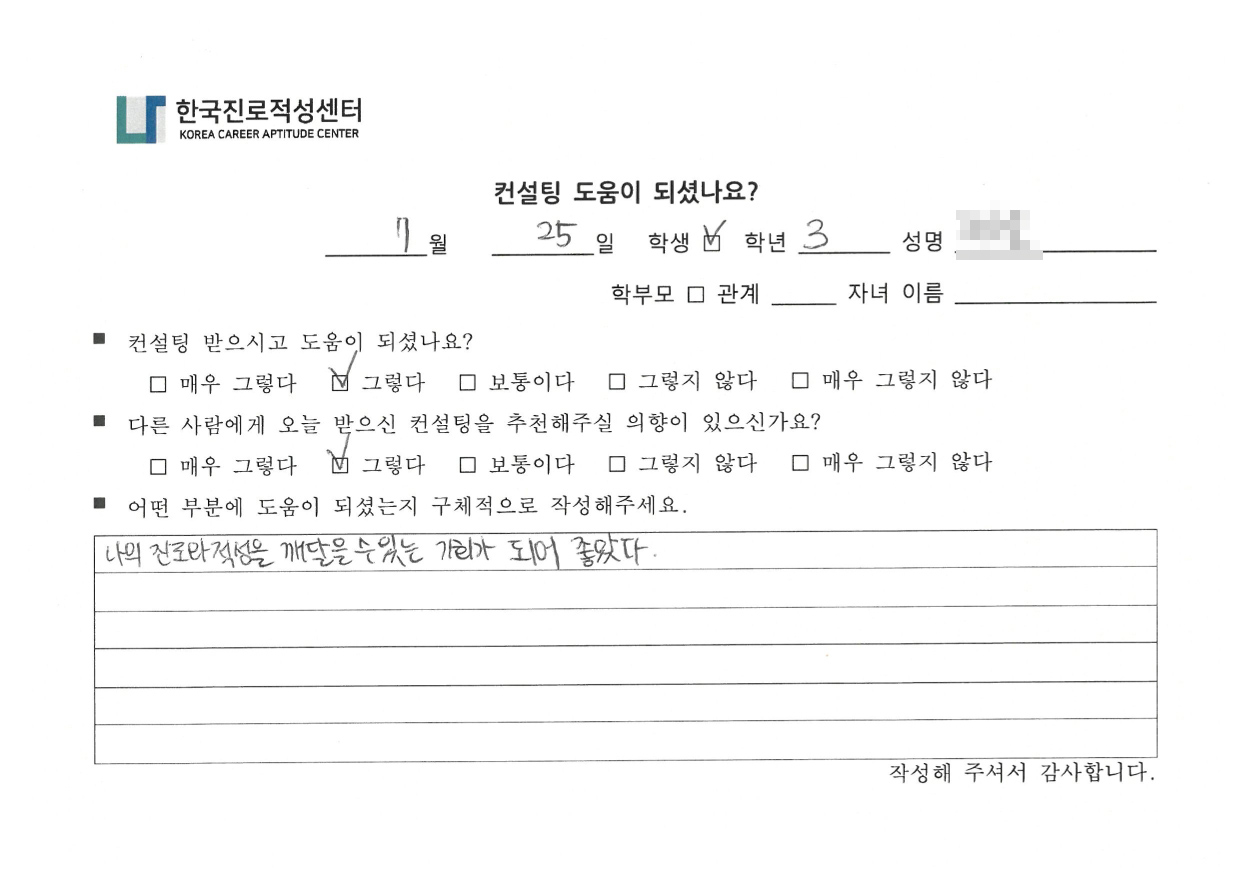 한국진로적성센터
KOREA CAREER APTITUDE CENTER
컨설팅 도움이 되셨나요?
7 월 25 일 학생 ☑ 학년 3 성명
학부모 □ 관계 자녀 이름
■ 컨설팅 받으시고 도움이 되셨나요?
□ 매우 그렇다 ☑ 그렇다 □ 보통이다 □ 그렇지 않다 □ 매우 그렇지 않다
■ 다른 사람에게 오늘 받으신 컨설팅을 추천해주실 의향이 있으신가요?
□ 매우 그렇다 ☑ 그렇다 □ 보통이다 □ 그렇지 않다 □ 매우 그렇지 않다
■ 어떤 부분에 도움이 되셨는지 구체적으로 작성해주세요.
나의 진로와 적성을 깨달을 수 있는 가 되어 좋았다.
작성해 주셔서 감사합니다.